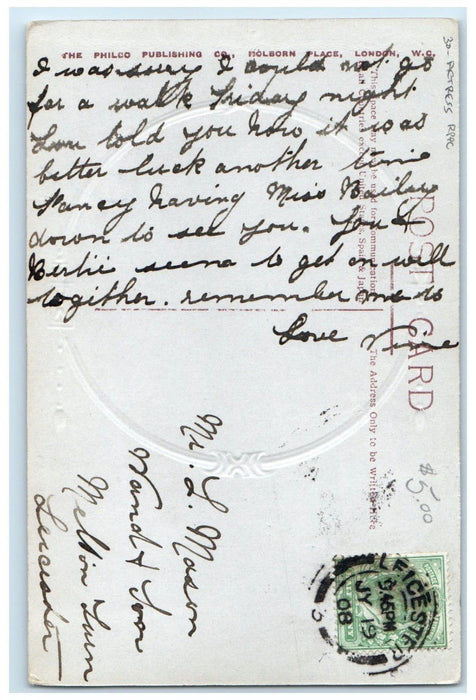 THE PHILCO PUBLISHING CO., HOLBORN PLACE, LONDON, W.C.
I was sorry I could not go
for a walk Friday night
Lou told you how it was
better luck another time
Fancy having Miss Bailey
down to see you. You &
Bertie seems to get on well
together. remember me to
Love
POST CARD
This space may now be used for communication
all Countries except United States, Spain & Japan.
The Address Only to be Written Here
Mr. L. Mason
Wand & Son
Melton Turn
Leicester
30- ACTRESS RPPC
$5.00
LEICESTER
5 45PM
JY 19
08